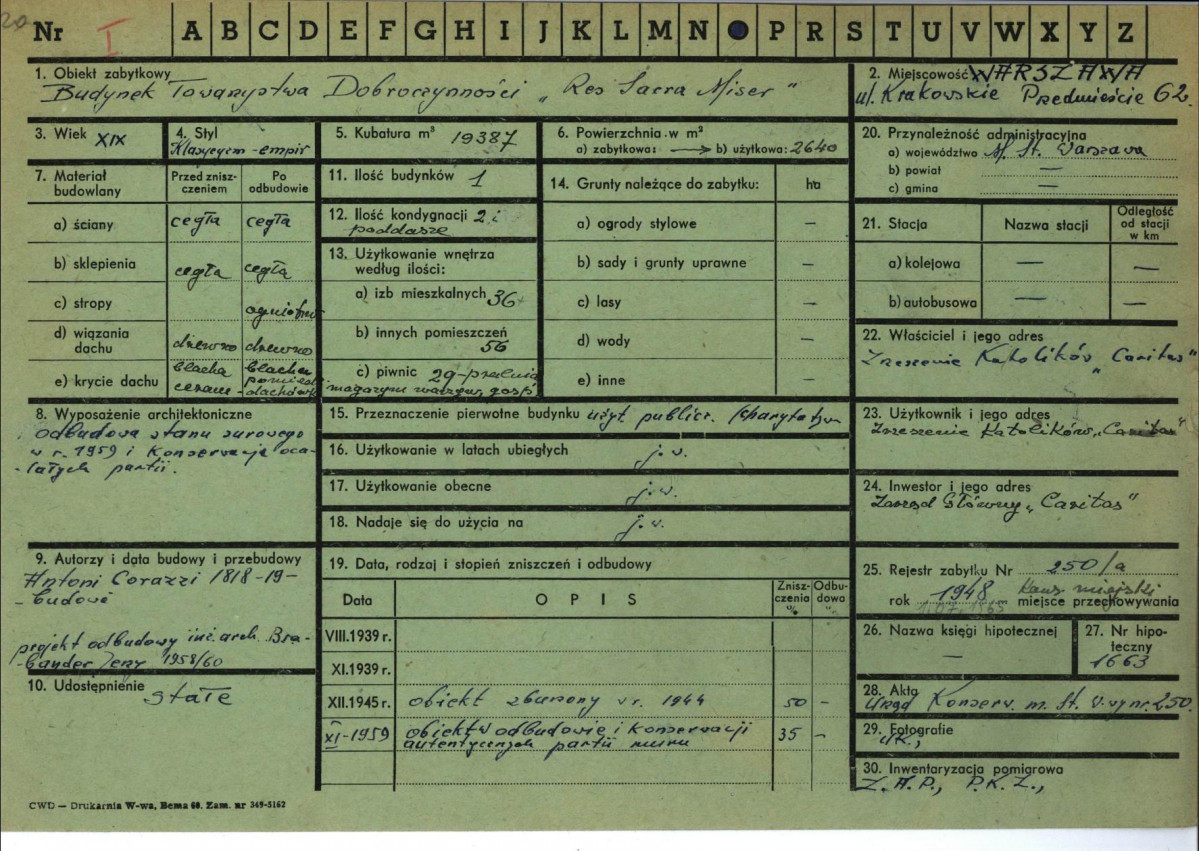 20
Nr I A B C D E F G H I J K L M N O P R S T U V W X Y Z
1. Obiekt zabytkowy
Budynek Towarzystwa Dobroczynności „Res Sacra Miser"
2. Miejscowość WARSZAWA
ul. Krakowskie Przedmieście 62.
3. Wiek XIX
4. Styl
Klasycyzm - empir
5. Kubatura m³ 19387
6. Powierzchnia w m²
a) zabytkowa: → b) użytkowa: 2640
7. Materiał budowlany
Przed zniszczeniem
Po odbudowie
a) ściany cegła cegła
b) sklepienia cegła cegła
c) stropy
d) wiązania dachu drewno drewno
e) krycie dachu blacha blacha
8. Wyposażenie architektoniczne
odbudowa stanu surowego
w r. 1959 i konserwacja oca-
-lałych partii.
9. Autorzy i data budowy i przebudowy
Antoni Corazzi 1818-19-
-budowa
projekt odbudowy inż. arch. Bra-
-bander Jerzy 1958/60
10. Udostępnienie stałe
11. Ilość budynków 1
12. Ilość kondygnacji 2 i
poddasze
13. Użytkowanie wnętrza
według ilości:
a) izb mieszkalnych 36
b) innych pomieszczeń
56
c) piwnic 29 - pralnia
magazyny warzyw, gosp.
14. Grunty należące do zabytku: ha
a) ogrody stylowe –
b) sady i grunty uprawne –
c) lasy –
d) wody –
e) inne –
15. Przeznaczenie pierwotne budynku użyt. public.
16. Użytkowanie w latach ubiegłych j.w.
17. Użytkowanie obecne j.w.
18. Nadaje się do użycia na j.w.
19. Data, rodzaj i stopień zniszczeń i odbudowy
Data OPIS Zniszczenia % Odbudowa %
VIII.1939 r.
XI.1939 r.
XII.1945 r. obiekt zburzony w r. 1944 50 –
XI-1959 obiekt w odbudowie i konserwacji
autentycznych partii muru 35 –
20. Przynależność administracyjna
a) województwo M. St. Warszawa
b) powiat —
c) gmina —
21. Stacja Nazwa stacji Odległość od stacji w km
a) kolejowa — —
b) autobusowa — —
22. Właściciel i jego adres
Zrzeszenie Katolików „Caritas"
23. Użytkownik i jego adres
Zrzeszenie Katolików „Caritas"
24. Inwestor i jego adres
Zarząd Główny „Caritas"
25. Rejestr zabytku Nr 250/a
rok 1948 Kons. miejski
miejsce przechowywania
26. Nazwa księgi hipotecznej
—
27. Nr hipoteczny
1663
28. Akta
Urząd Konserw. m. St. W-wy nr. 250.
29. Fotografie
30. Inwentaryzacja pomiarowa
Z.A.P., P.K.Z.,
CWD — Drukarnia W-wa, Bema 60. Zam. nr 349-5162